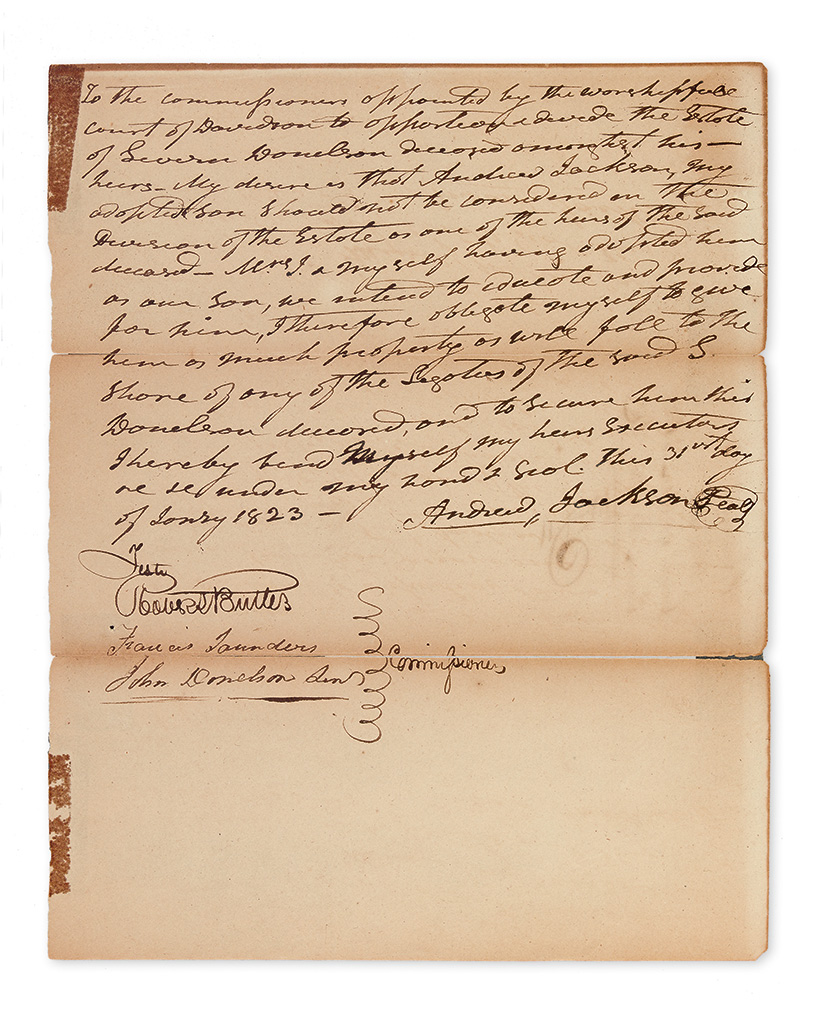 To the commissioners appointed by the worshipfull
court of Davidson to apportion & devide the Estate
of Severn Donelson deceased amonghst his —
heirs — My desire is that Andrew Jackson, my
adopted son should not be considered in the
Division of the Estate as one of the heirs of the said
deceased — Mrs. J. & myself having adopted him
as our son, we intend to educate and provide
for him, I therefore obligate myself to give
him as much property as will fall to the
share of any of the Legatees of the said S.
Donelson deceased, and to secure him this
I hereby bind myself my heirs Executors
under my hand & Seal. This 31st day
of Janry 1823 —
Andrew Jackson Seal
Test
Robert Butler
Francis Saunders
John Donelson
Commissioners